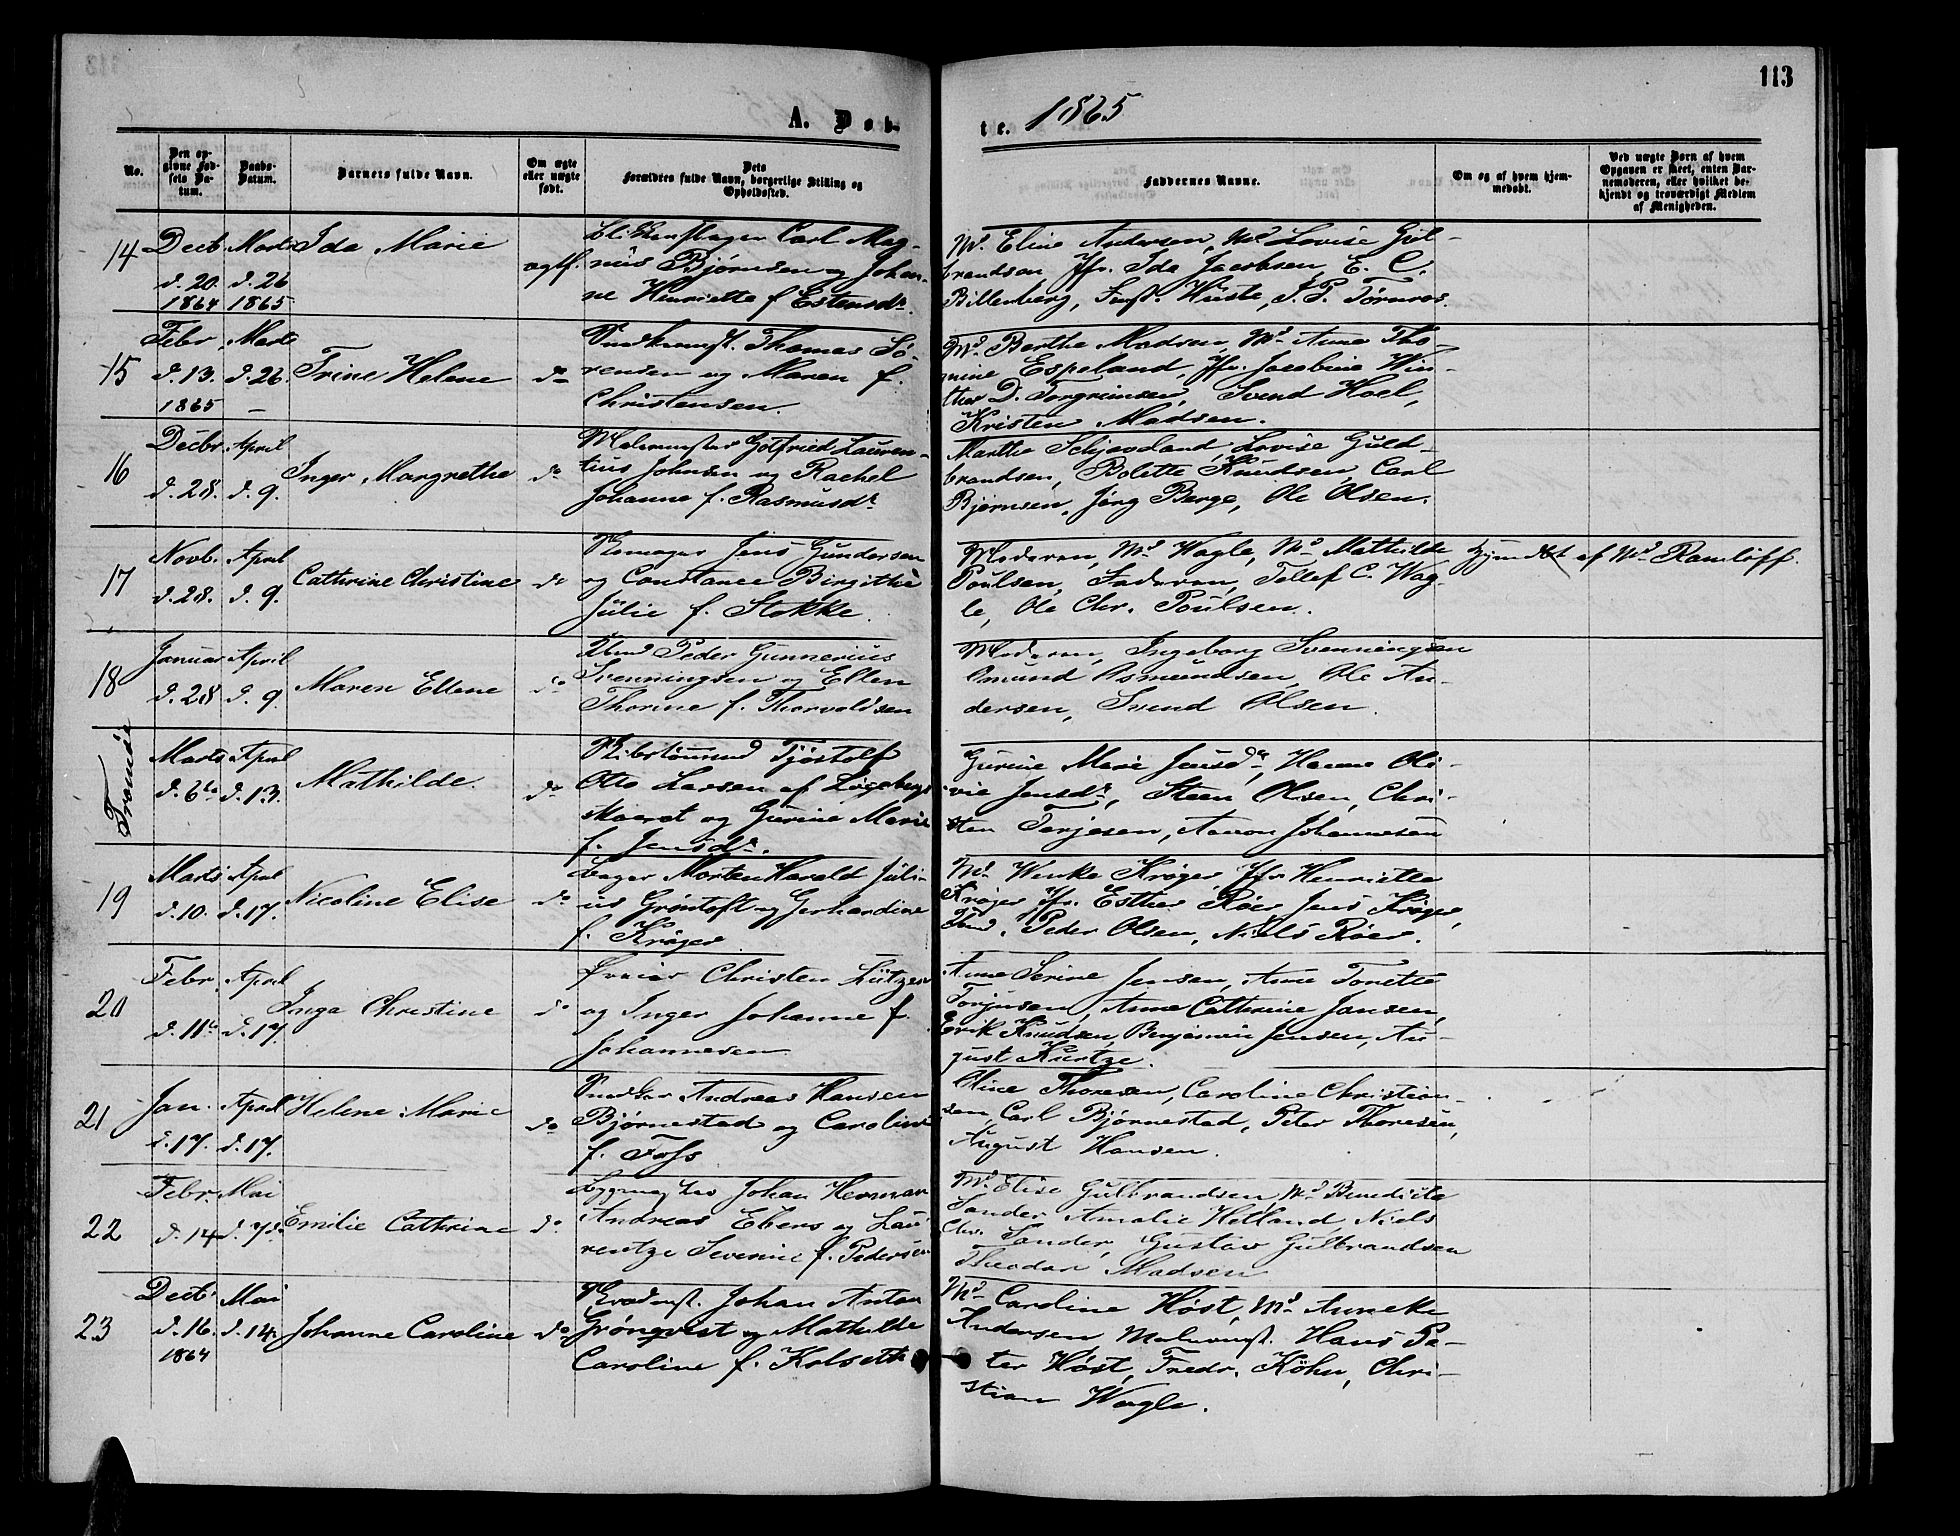 113
A. Døb-
te. 1865
No.
Den op-
givne Fød-
sels Da-
tum.
Daabs-
Datum.
Barnets fulde Navn.
Om ægte
eller uægte
født.
Dets
Forældres fulde Navn, borgerlige Stilling og
Opholdssted.
Faddernes Navne.
Om og af hvem hjem-
medøbt.
Ved uægte Børn af hvem
Opgaven er skeet, enten Bar-
nemoderen, eller hvilket be-
kjendt og troværdigt Medlem
af Menigheden.
14 Decb. Marts Ida Marie
d. 20. d. 26
1864 1865
ægtf. Carl Mag-
nus Bjørnsen og Johan-
ne Henriette f. Estensdr.
Md. Eline Andersen, Md. Lovise Gul-
brandsen Jfr. Ida Jacobsen, E. C.
Billenberg, Huste, J. P. Tørnros.
15 Febr. Marts Trine Helene do
d. 13. d. 26.
1865 –
Thomas Sø-
rensen og Maren f.
Christensen.
Md. Berthe Madsen, Md. Anne Tho-
mine Espeland, Jfr. Jacobine Win-
ther D. Torgrimsen, Svend Hoel,
Kristen Madsen.
16 Decbr. April Inger Margrethe do
d. 28. d. 9.
Malermester Gotfried Lauren-
tius Johnsen og Rachel
Johanne f. Rasmusdr.
Marthe Schjævland, Lovise Guld-
brandsen, Bolette Knudsen, Carl
Bjørnsen, Jørg Berge, Ole Olsen.
17 Novb. April Cathrine Christine do
d. 28. d. 9.
Jens Gundersen
og Constance Birgithe
Julie f. Stokke.
Moderen, Md. Wagle, Md. Mathilde
Poulsen, Faderen, Tellef C. Wag-
le, Ole Chr. Poulsen.
Hjemdøbt af Md. Ramløff.
18 Januar April Maren Ellene do
d. 28 d. 9.
Peder Gunnerius
Svenningsen og Ellen
Thorine f. Thorvaldsen
Moderen, Ingeborg Svenningsen
Omund Osmundsen, Ole An-
dersen, Svend Olsen.
Tromøe Marts April Mathilde. do
d. 6te d. 13.
Tjøstolf
Otto Larsen af
og Gurine Marie
f. Jensdr.
Gurine Marie Jensdr, Hanne Oli-
vie Jensdr, Steen Olsen, Chri-
sten Terjesen, Aanon Johannesen
19 Marts April Nicoline Elise do
d. 10. d. 17.
Bager Morten Harald Juli-
us Grøntoft og Gerhardine
f. Krøger
Md. Wenke Krøger Jfr. Henriette
Krøger Jfr. Esther Røer Jens Krøger,
Peder Olsen, Niels Røer.
20 Febr. April Inga Christine do
d. 11te d. 17.
Christen Lützen
og Inger Johanne f.
Johannesen
Anne Serine Jensen, Anne Tonette
Torjusen, Anne Cathrine Jansen,
Erik Knudsen, Benjamin Jensen, Au-
gust Kurtze.
21 Jan. April Helene Marie do
d. 17. d. 17.
Snedker Andreas Hansen
Bjørnestad og Caroline
f. Foss
Oline Thoresen, Caroline Christian-
sen, Carl Bjørnestad, Peter Thoresen,
August Hansen.
22 Febr. Mai Emilie Cathrine do
d. 14 d. 7de
Johan Herman
Andreas Ebers og Lau-
rentze Severine f. Pedersen
Md. Elise Gulbrandsen, Md. Benedicte
Sander Amalie Hetland, Niels
Chr. Sander, Gustav Gulbrandsen
Theodor Madsen
23 Decb. Mai Johanne Caroline do
d. 16. d. 14.
1864
Johan Anton
Grönqvist og Mathilde
Caroline f. Kolseth
Md. Caroline Høst, Md. Anneke
Andersen Malermst. Hans Pe-
ter Høst, Fredr. Köhn, Chri-
stian Wagle.